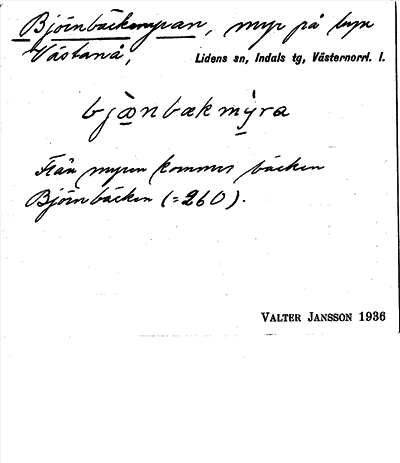 Björnbäckmyran, myr på byn
Västanå, Lidens sn, Indals tg, Västernorrl. l.
bjœ̀nbækmỳra
Från myren kommer bäcken
Björnbäcken (=260).
VALTER JANSSON 1936